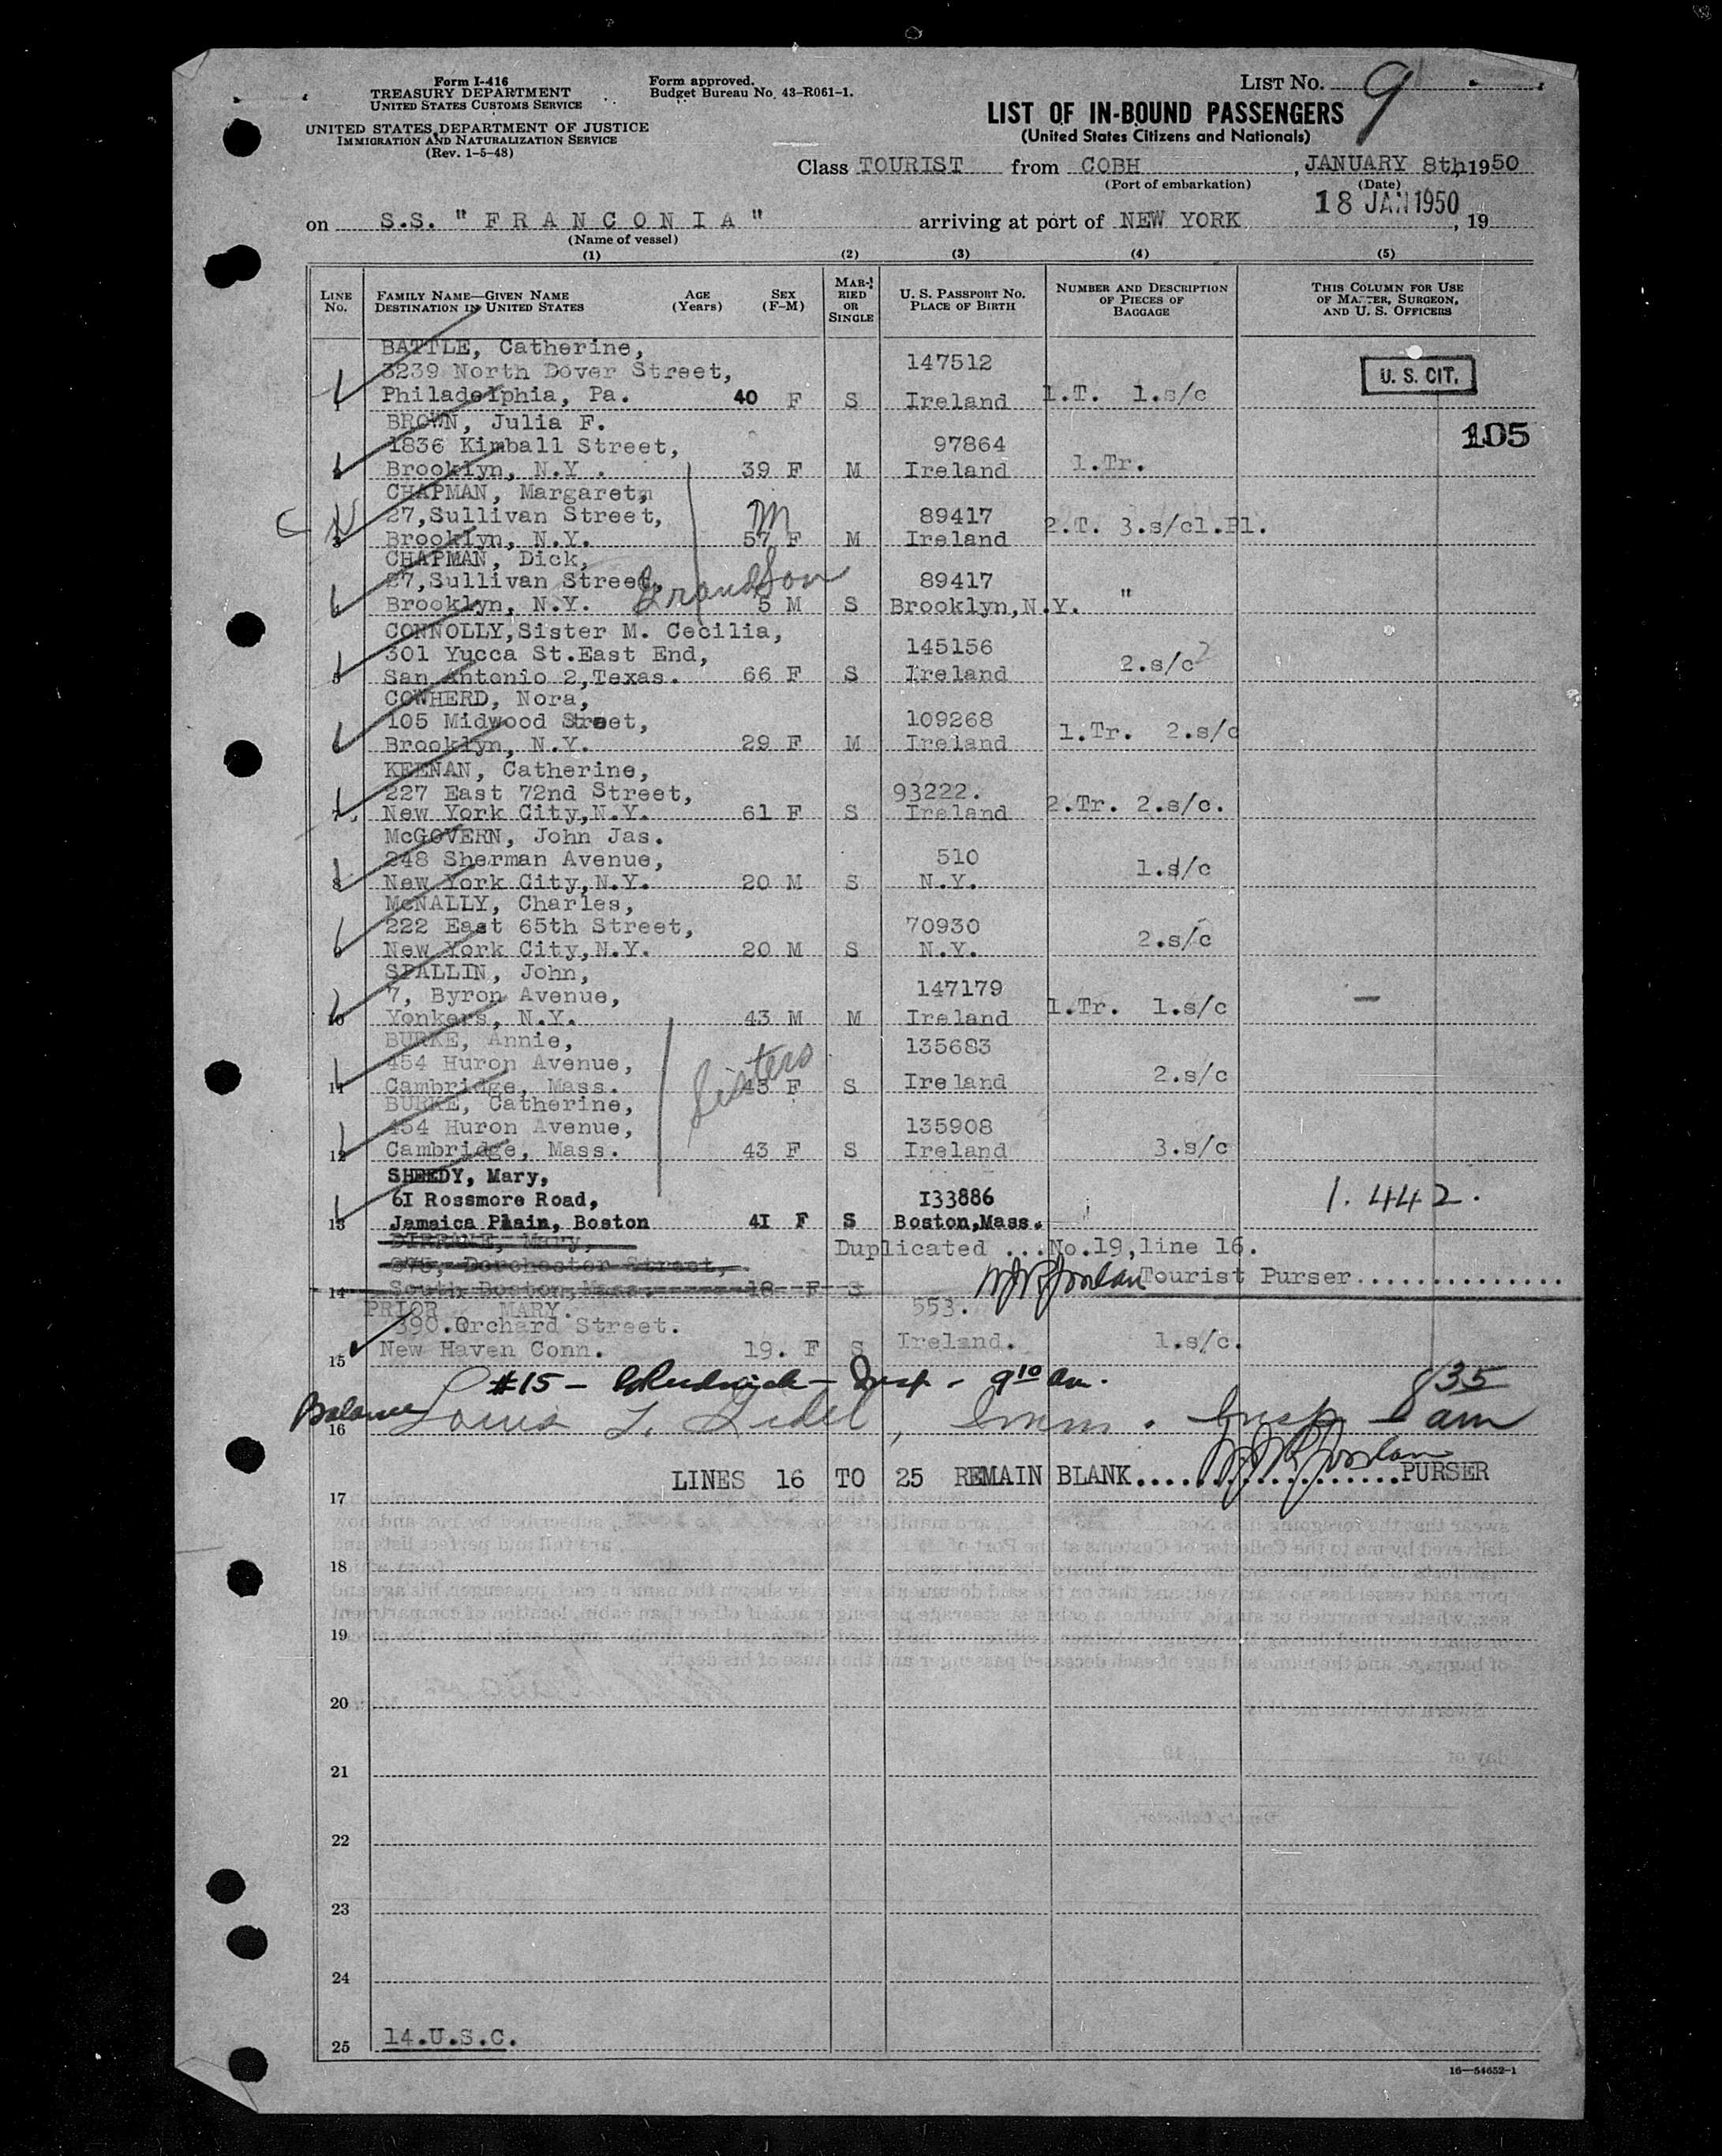 Form I-416
TREASURY DEPARTMENT
UNITED STATES CUSTOMS SERVICE
UNITED STATES DEPARTMENT OF JUSTICE
IMMIGRATION AND NATURALIZATION SERVICE
(Rev. 1-5-48)
Form approved.
Budget Bureau No. 43-R061-1.
LIST No. 9
LIST OF IN-BOUND PASSENGERS
(United States Citizens and Nationals)
Class TOURIST from COBH, JANUARY 8th, 1950
(Port of embarkation) (Date)
18 JAN 1950
on S.S. "FRANCONIA" arriving at port of NEW YORK, 19
(Name of vessel)
(1) (2) (3) (4) (5)
LINE No. FAMILY NAME—GIVEN NAME DESTINATION IN UNITED STATES AGE (Years) SEX (F-M) MARRIED OR SINGLE U. S. PASSPORT NO. PLACE OF BIRTH NUMBER AND DESCRIPTION OF PIECES OF BAGGAGE THIS COLUMN FOR USE OF MASTER, SURGEON, AND U. S. OFFICERS
BATTLE, Catherine,
3239 North Dover Street, 147512
Philadelphia, Pa. 40 F S Ireland 1.T. 1.s/c U. S. CIT.
BROWN, Julia F. 105
1836 Kimball Street, 97864
Brooklyn, N.Y. 39 F M Ireland 1.Tr.
CHAPMAN, Margaret,
27,Sullivan Street, M 89417
Brooklyn, N.Y. 57 F M Ireland 2.T. 3.s/c1.Pl.
CHAPMAN, Dick,
27,Sullivan Street, Grandson 89417
4 Brooklyn, N.Y. 5 M S Brooklyn,N.Y. "
CONNOLLY,Sister M. Cecilia,
301 Yucca St.East End, 145156
5 San Antonio 2,Texas. 66 F S Ireland 2.s/c 2
COWHERD, Nora,
105 Midwood Street, 109268
6 Brooklyn, N.Y. 29 F M Ireland 1.Tr. 2.s/c
KEENAN, Catherine,
227 East 72nd Street, 93222.
7 New York City,N.Y. 61 F S Ireland 2.Tr. 2.s/c.
McGOVERN, John Jas.
248 Sherman Avenue, 510
8 New York City,N.Y. 20 M S N.Y. 1.s/c
McNALLY, Charles,
222 East 65th Street, 70930
9 New York City,N.Y. 20 M S N.Y. 2.s/c
SPALLIN, John,
7, Byron Avenue, 147179
10 Yonkers, N.Y. 43 M M Ireland 1.Tr. 1.s/c —
BURKE, Annie, 135683
454 Huron Avenue, Sisters
11 Cambridge, Mass. 45 F S Ireland 2.s/c
BURKE, Catherine,
454 Huron Avenue, 135908
12 Cambridge, Mass. 43 F S Ireland 3.s/c
SHEEDY, Mary,
61 Rossmore Road, 133886 1.442.
13 Jamaica Plain, Boston 41 F S Boston,Mass.
DIRRANE, Mary, Duplicated ...No.19,line 16.
Dorchester Street, Tourist Purser...............
14 South Boston,Mass. 18 F S
PRIOR MARY. 553.
390.Orchard Street.
15 New Haven Conn. 19. F S Ireland. 1.s/c.
#15 — Insp - 9 10 am. 8 35
Balance
16 Louis Imm. Insp. 8 am
LINES 16 TO 25 REMAIN BLANK...................PURSER
17
18
19
20
21
22
23
24
25 14.U.S.C.
16—54652-1